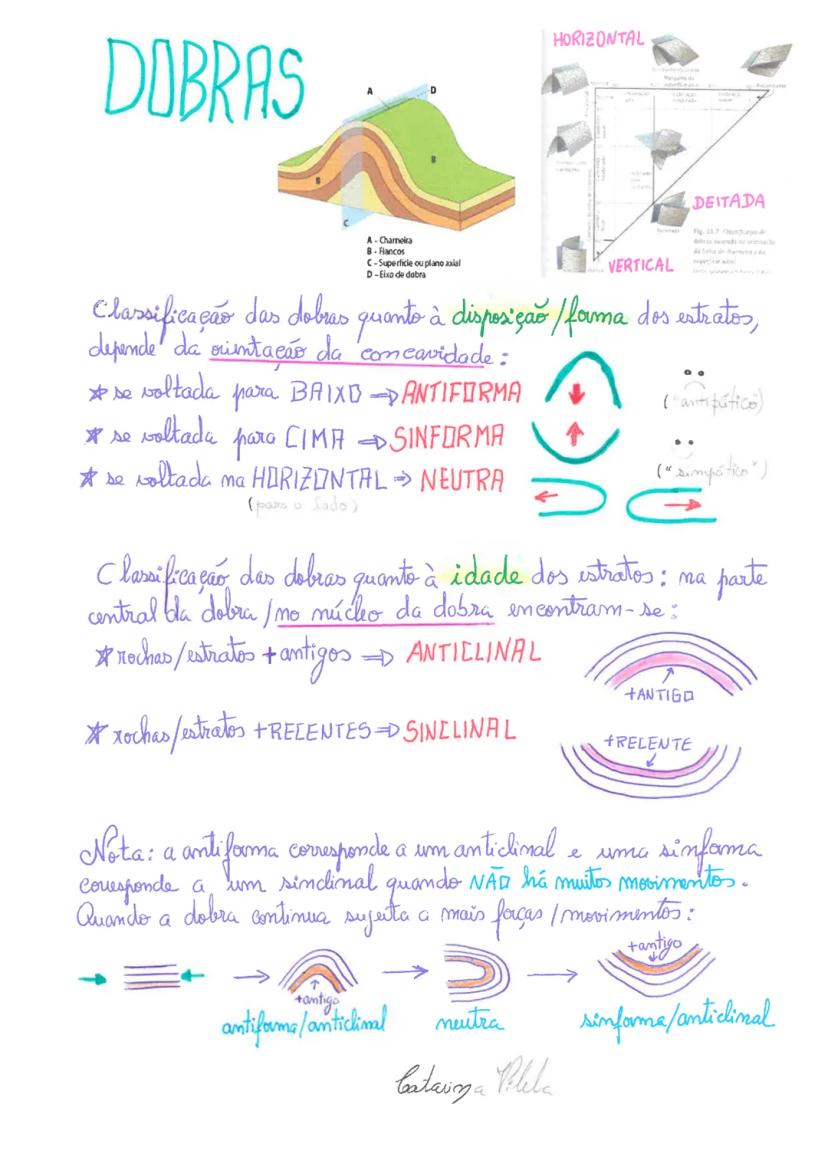 DOBRAS
HORIZONTAL
DEITADA
VERTICAL
Fig. 11.7 Classificação de
A
D
B
B
C
A - Charneira
B - Flancos
C - Superfície ou plano axial
D - Eixo de dobra
Classificação das dobras quanto à disposição/forma dos estratos,
depende da orientação da concavidade:
* se voltada para BAIXO ⇒ ANTIFORMA
("antipático")
* se voltada para CIMA ⇒ SINFORMA
("simpático")
* se voltada na HORIZONTAL ⇒ NEUTRA
(para o lado)
Classificação das dobras quanto à idade dos estratos: na parte
central da dobra/no núcleo da dobra encontram-se:
* rochas/estratos + antigos ⇒ ANTICLINAL
+ANTIGO
* rochas/estratos +RECENTES ⇒ SINCLINAL
+RECENTE
Nota: a antiforma corresponde a um anticlinal e uma sinforma
corresponde a um sinclinal quando NÃO há muitos movimentos.
Quando a dobra continua sujeita a mais forças/movimentos:
+antigo
+antigo
antiforma/anticlinal
neutra
sinforma/anticlinal
Catarina Vilela